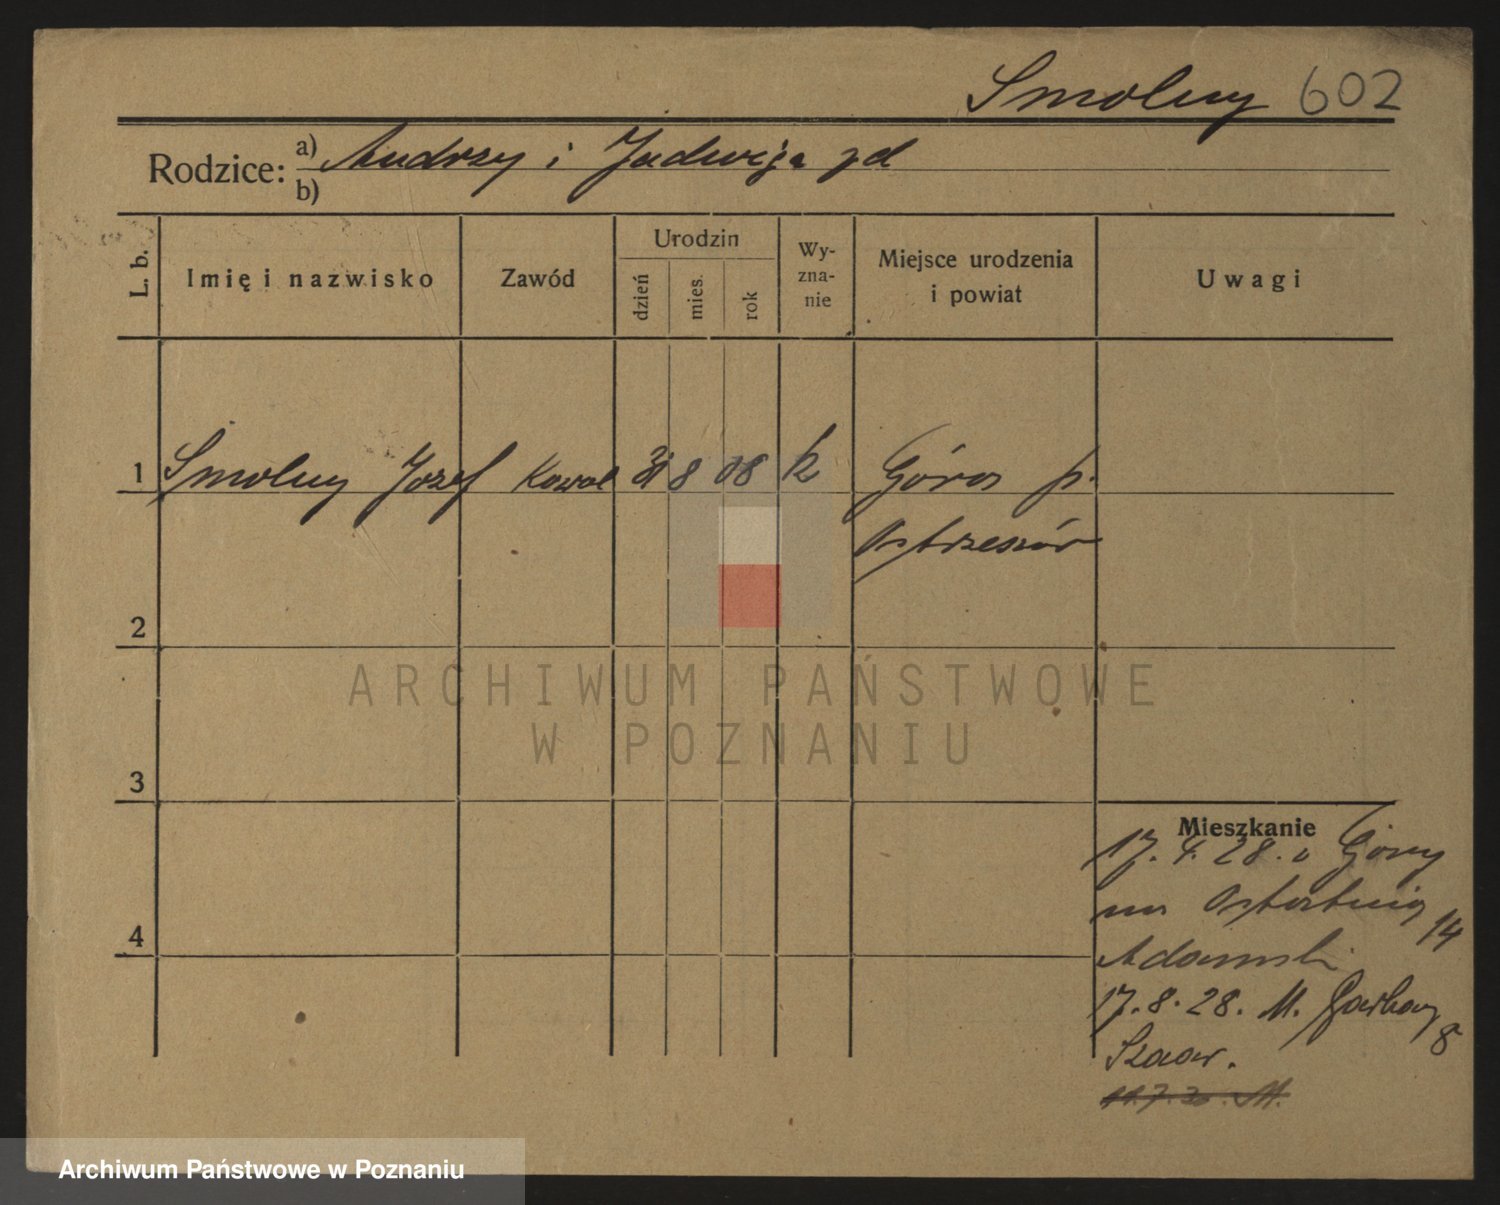 Smolny 602
Rodzice: a) Andrzy i Jadwiga zd
b)
L. b.
Imię i nazwisko
Zawód
Urodzin
dzień
mies.
rok
Wy-
zna-
nie
Miejsce urodzenia
i powiat
Uwagi
1 Smolny Józef Kowal 31 8 08 k Góra p.
Ostrzeszów
2
ARCHIWUM PAŃSTWOWE
W POZNANIU
3
Mieszkanie
17. 4. 28. Góry
na Ostatnia 14
4
Adamski
17. 8. 28. M. Garbary 8
11.7.30. M.
Archiwum Państwowe w Poznaniu